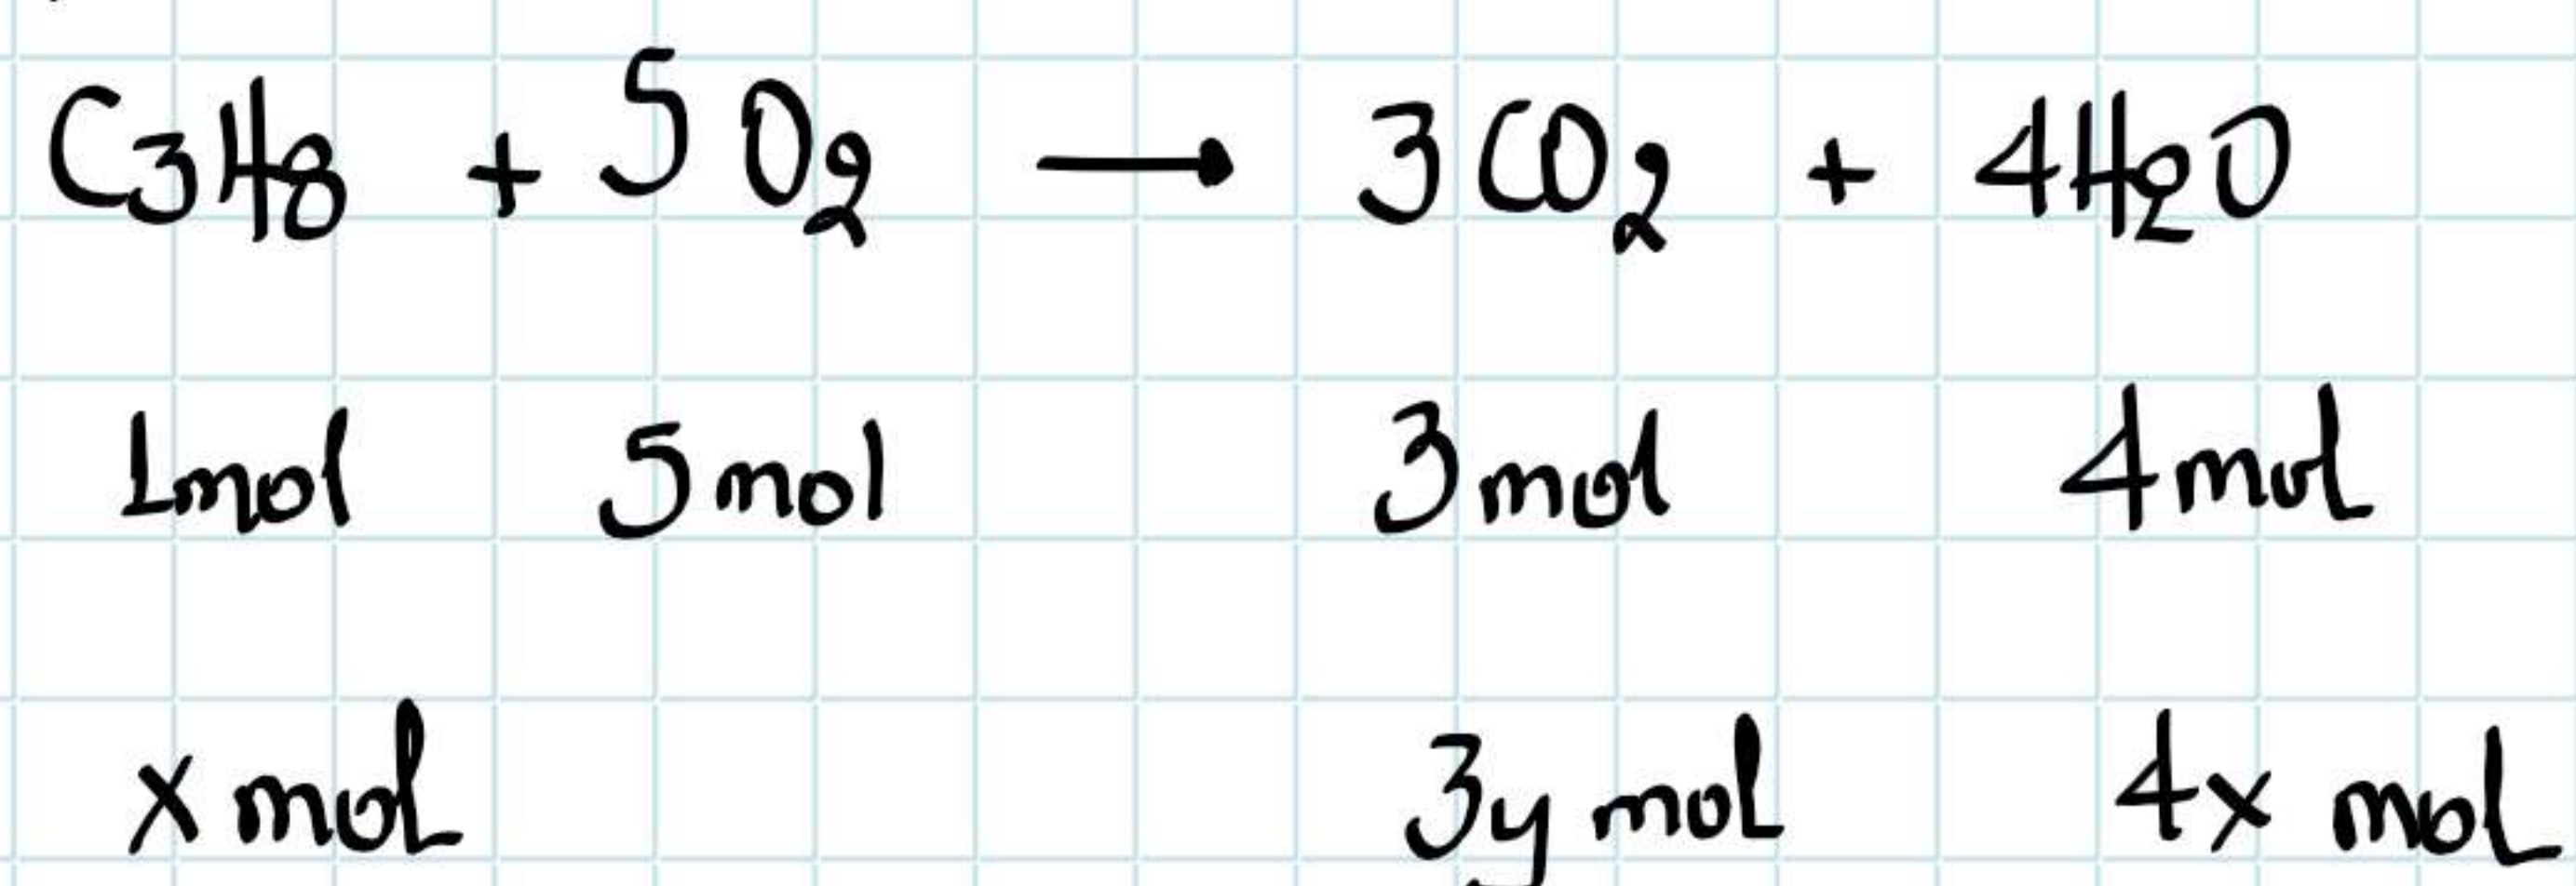 C3H8 + 5 O2 → 3CO2 + 4H2O
1mol 5mol 3mol 4mol
x mol 3y mol 4x mol